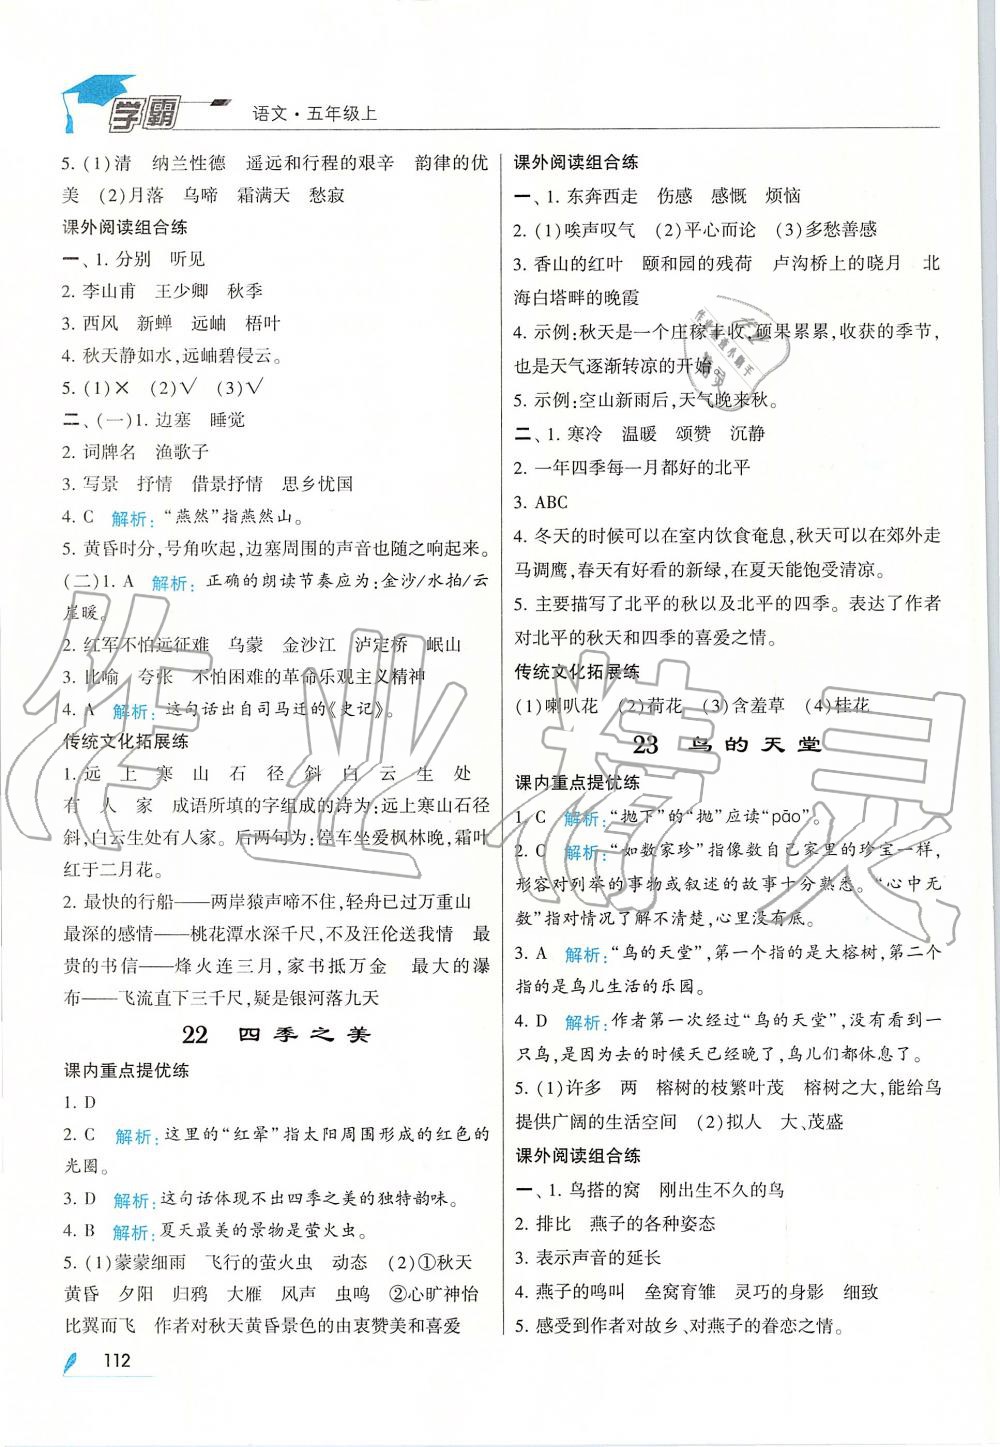 学霸
语文·五年级上
5. (1)清　纳兰性德　遥远和行程的艰辛　韵律的优
美　(2)月落　乌啼　霜满天　愁寂
课外阅读组合练
一、1. 分别　听见
2. 李山甫　王少卿　秋季
3. 西风　新蝉　远岫　梧叶
4. 秋天静如水,远岫碧侵云。
5. (1)×　(2)√　(3)√
二、(一)1. 边塞　睡觉
2. 词牌名　渔歌子
3. 写景　抒情　借景抒情　思乡忧国
4. C　解析:“燕然”指燕然山。
5. 黄昏时分,号角吹起,边塞周围的声音也随之响起来。
(二)1. A　解析:正确的朗读节奏应为:金沙/水拍/云
崖暖。
2. 红军不怕远征难　乌蒙　金沙江　泸定桥　岷山
3. 比喻　夸张　不怕困难的革命乐观主义精神
4. A　解析:这句话出自司马迁的《史记》。
传统文化拓展练
1. 远　上　寒　山　石　径　斜　白　云　生　处
有　人　家　成语所填的字组成的诗为:远上寒山石径
斜,白云生处有人家。后两句为:停车坐爱枫林晚,霜叶
红于二月花。
2. 最快的行船——两岸猿声啼不住,轻舟已过万重山
最深的感情——桃花潭水深千尺,不及汪伦送我情　最
贵的书信——烽火连三月,家书抵万金　最大的瀑
布——飞流直下三千尺,疑是银河落九天
22　四季之美
课内重点提优练
1. D
2. C　解析:这里的“红晕”指太阳周围形成的红色的
光圈。
3. D　解析:这句话体现不出四季之美的独特韵味。
4. B　解析:夏天最美的景物是萤火虫。
5. (1)蒙蒙细雨　飞行的萤火虫　动态　(2)①秋天
黄昏　夕阳　归鸦　大雁　风声　虫鸣　②心旷神怡
比翼而飞　作者对秋天黄昏景色的由衷赞美和喜爱
112
课外阅读组合练
一、1. 东奔西走　伤感　感慨　烦恼
2. (1)唉声叹气　(2)平心而论　(3)多愁善感
3. 香山的红叶　颐和园的残荷　卢沟桥上的晓月　北
海白塔畔的晚霞
4. 示例:秋天是一个庄稼丰收,硕果累累,收获的季节,
也是天气逐渐转凉的开始
5. 示例:空山新雨后,天气晚来秋。
二、1. 寒冷　温暖　颂赞　沉静
2. 一年四季每一月都好的北平
3. ABC
4. 冬天的时候可以在室内饮食奄息,秋天可以在郊外走
马调鹰,春天有好看的新绿,在夏天能饱受清凉。
5. 主要描写了北平的秋以及北平的四季。表达了作者
对北平的秋天和四季的喜爱之情。
传统文化拓展练
(1)喇叭花　(2)荷花　(3)含羞草　(4)桂花
23　鸟的天堂
课内重点提优练
1. C　解析:“抛下”的“抛”应读“pāo”。
2. C　解析:“如数家珍”指像数自己家里的珍宝一样,
形容对列举的事物或叙述的故事十分熟悉。“心中无
数”指对情况了解不清楚,心里没有底。
3. A　解析:“鸟的天堂”,第一个指的是大榕树,第二个
指的是鸟儿生活的乐园。
4. D　解析:作者第一次经过“鸟的天堂”,没有看到一
只鸟,是因为去的时候天晚了,鸟儿都休息了。
5. (1)许多　两　榕树的枝繁叶茂　榕树之大,能给鸟
提供广阔的生活空间　(2)拟人　大、茂盛
课外阅读组合练
一、1. 鸟搭的窝　刚出生不久的鸟
2. 排比　燕子的各种姿态
3. 表示声音的延长
4. 燕子的鸣叫　垒窝育雏　灵巧的身影　细致
5. 感受到作者对故乡、对燕子的眷恋之情。
作业精灵